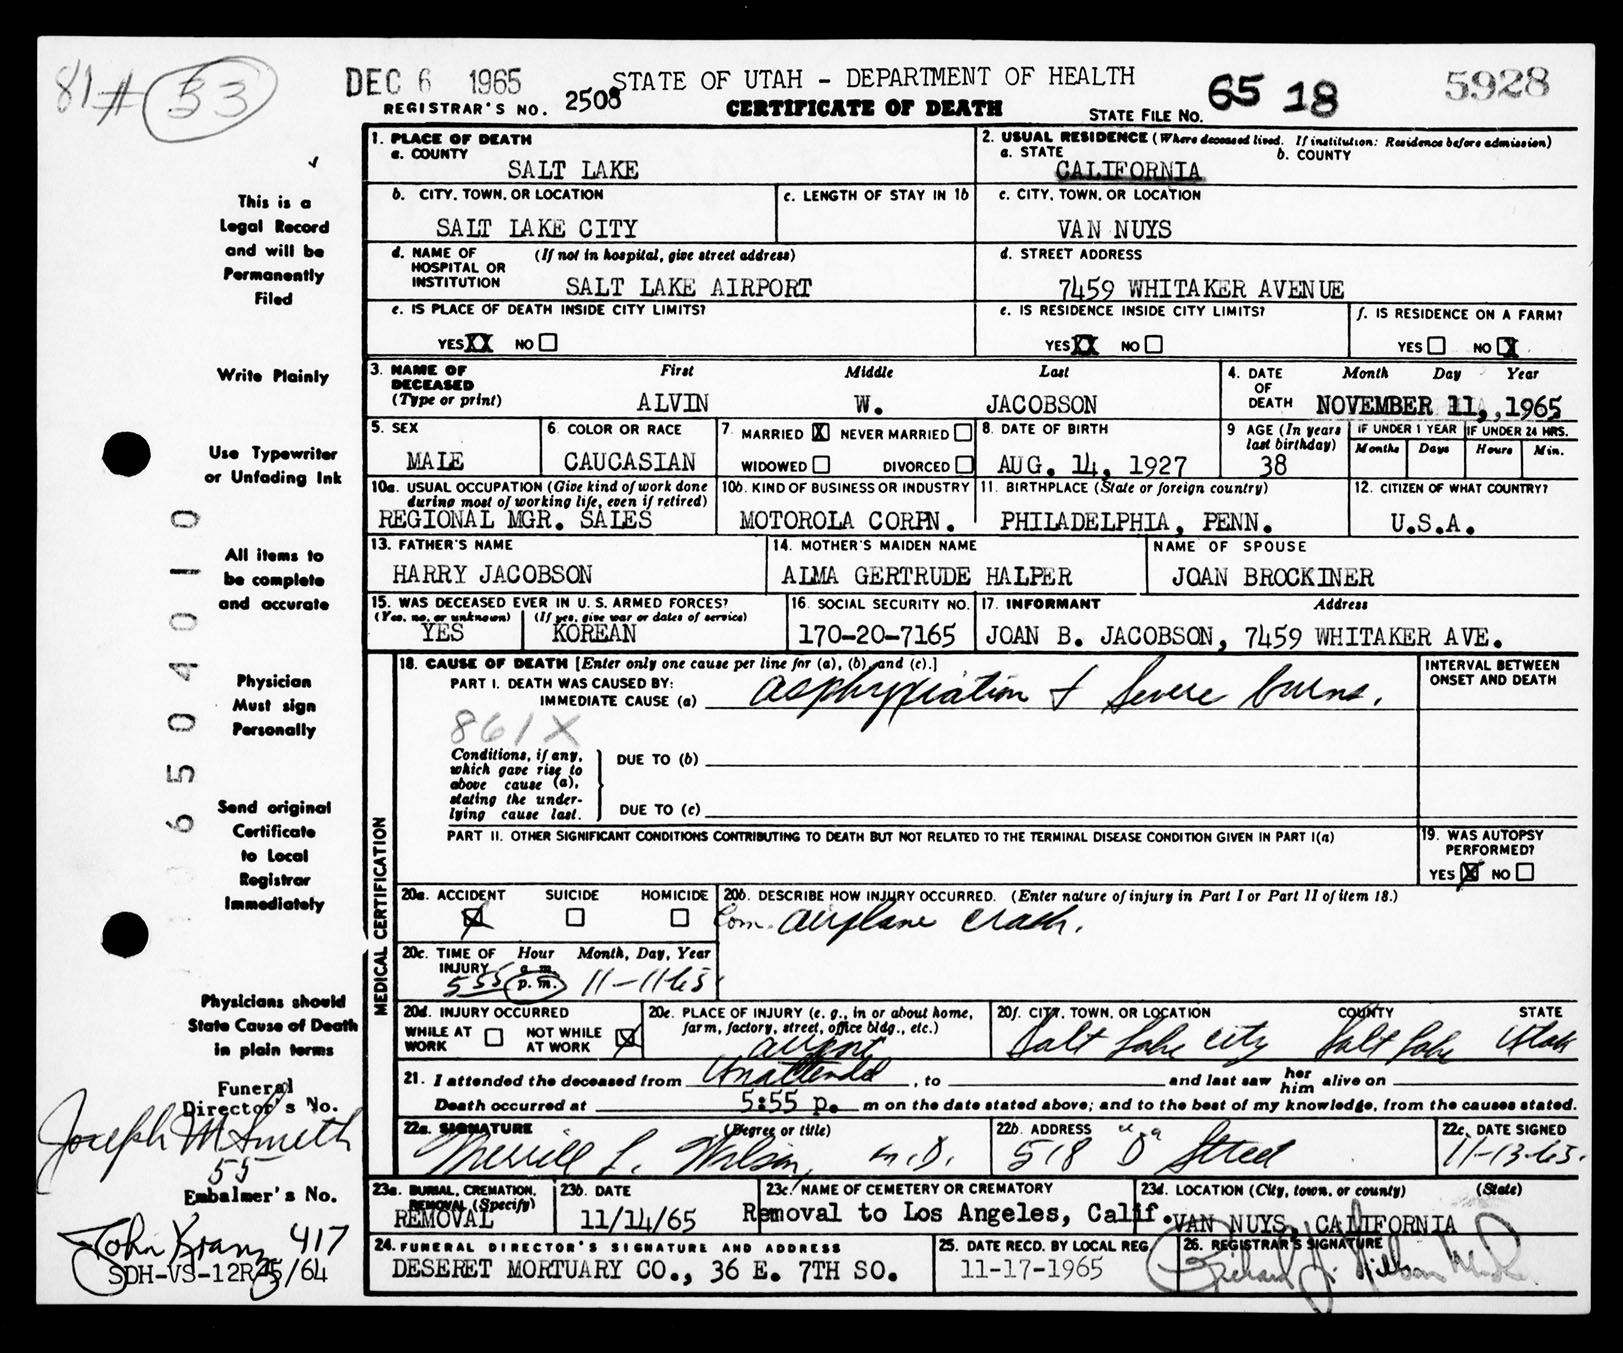 81 # 33
DEC 6 1965 STATE OF UTAH - DEPARTMENT OF HEALTH 65 18 5928
REGISTRAR'S NO. 2508 CERTIFICATE OF DEATH STATE FILE NO.
This is a
Legal Record
and will be
Permanently
Filed
Write Plainly
Use Typewriter
or Unfading Ink
All items to
be complete
and accurate
Physician
Must sign
Personally
Send original
Certificate
to Local
Registrar
Immediately
Physicians should
State Cause of Death
in plain terms
Funeral
Director's No.
Joseph M Smith
55
Embalmer's No.
John Kranz 417
SDH-VS-12R 25/64
65 04010
1. PLACE OF DEATH
a. COUNTY
SALT LAKE
2. USUAL RESIDENCE (Where deceased lived. If institution: Residence before admission)
a. STATE b. COUNTY
CALIFORNIA
b. CITY, TOWN, OR LOCATION c. LENGTH OF STAY IN 1b
SALT LAKE CITY
c. CITY, TOWN, OR LOCATION
VAN NUYS
d. NAME OF (If not in hospital, give street address)
HOSPITAL OR
INSTITUTION SALT LAKE AIRPORT
d. STREET ADDRESS
7459 WHITAKER AVENUE
e. IS PLACE OF DEATH INSIDE CITY LIMITS?
YES XX NO
e. IS RESIDENCE INSIDE CITY LIMITS?
YES XX NO
f. IS RESIDENCE ON A FARM?
YES NO X
3. NAME OF First Middle Last
DECEASED
(Type or print) ALVIN W. JACOBSON
4. DATE Month Day Year
OF
DEATH NOVEMBER 11, ,1965
5. SEX
MALE
6. COLOR OR RACE
CAUCASIAN
7. MARRIED X NEVER MARRIED
WIDOWED DIVORCED
8. DATE OF BIRTH
AUG. 14, 1927
9 AGE (In years
last birthday)
38
IF UNDER 1 YEAR IF UNDER 24 HRS.
Months Days Hours Min.
10a. USUAL OCCUPATION (Give kind of work done
during most of working life, even if retired)
REGIONAL MGR. SALES
10b. KIND OF BUSINESS OR INDUSTRY
MOTOROLA CORPN.
11. BIRTHPLACE (State or foreign country)
PHILADELPHIA, PENN.
12. CITIZEN OF WHAT COUNTRY?
U.S.A.
13. FATHER'S NAME
HARRY JACOBSON
14. MOTHER'S MAIDEN NAME
ALMA GERTRUDE HALPER
NAME OF SPOUSE
JOAN BROCKINER
15. WAS DECEASED EVER IN U. S. ARMED FORCES?
(Yes, no, or unknown) (If yes, give war or dates of service)
YES KOREAN
16. SOCIAL SECURITY NO.
170-20-7165
17. INFORMANT Address
JOAN B. JACOBSON, 7459 WHITAKER AVE.
MEDICAL CERTIFICATION
18. CAUSE OF DEATH [Enter only one cause per line for (a), (b), and (c).]
PART I. DEATH WAS CAUSED BY:
IMMEDIATE CAUSE (a) asphyxiation & Severe burns.
INTERVAL BETWEEN
ONSET AND DEATH
861X
Conditions, if any,
which gave rise to
above cause (a),
stating the under-
lying cause last.
DUE TO (b)
DUE TO (c)
PART II. OTHER SIGNIFICANT CONDITIONS CONTRIBUTING TO DEATH BUT NOT RELATED TO THE TERMINAL DISEASE CONDITION GIVEN IN PART I(a)
19. WAS AUTOPSY
PERFORMED?
YES X NO
20a. ACCIDENT SUICIDE HOMICIDE
X
20b. DESCRIBE HOW INJURY OCCURRED. (Enter nature of injury in Part I or Part II of item 18.)
Com. airplane crash.
20c. TIME OF Hour Month, Day, Year
INJURY a. m.
555 p. m. 11-11-65
20d. INJURY OCCURRED
WHILE AT WORK NOT WHILE AT WORK X
20e. PLACE OF INJURY (e. g., in or about home,
farm, factory, street, office bldg., etc.)
airport
20f. CITY, TOWN, OR LOCATION COUNTY STATE
Salt Lake City Salt Lake Utah
21. I attended the deceased from Unattended, to and last saw her him alive on
Death occurred at 5:55 p. m on the date stated above; and to the best of my knowledge, from the causes stated.
22a. SIGNATURE (Degree or title)
Merrill L. Wilson, M.D.
22b. ADDRESS
518 "D" Street
22c. DATE SIGNED
11-13-65.
23a. BURIAL, CREMATION,
REMOVAL (Specify)
REMOVAL
23b. DATE
11/14/65
23c. NAME OF CEMETERY OR CREMATORY
Removal to Los Angeles, Calif.
23d. LOCATION (City, town, or county) (State)
VAN NUYS, CALIFORNIA
24. FUNERAL DIRECTOR'S SIGNATURE AND ADDRESS
DESERET MORTUARY CO., 36 E. 7TH SO.
25. DATE RECD. BY LOCAL REG.
11-17-1965
26. REGISTRAR'S SIGNATURE